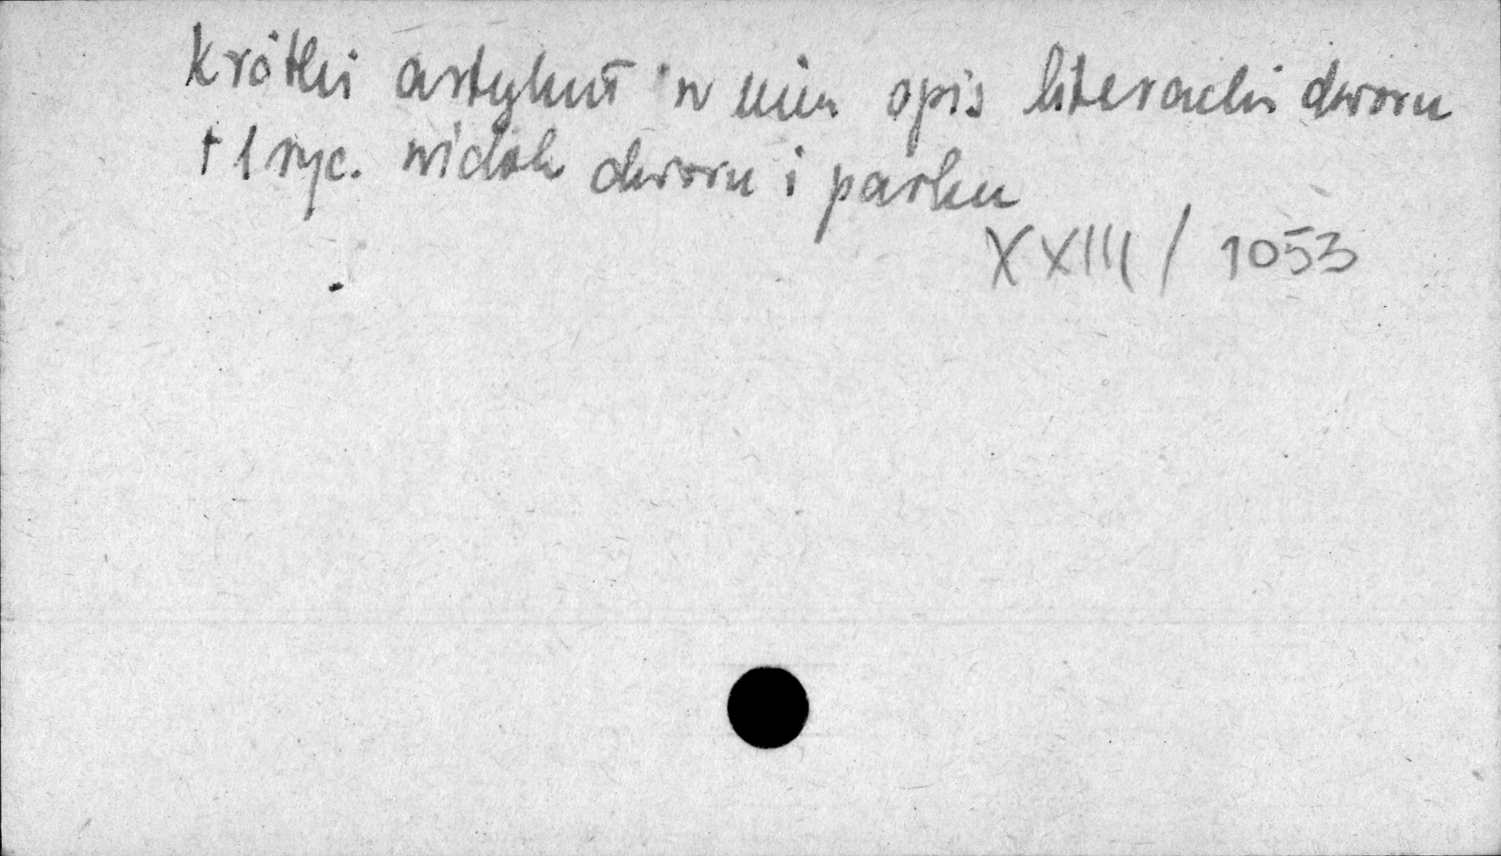 Krótki artykuł w nim opis literacki dworu
+ 1 ryc. widok dworu i parku
XXIII / 1053